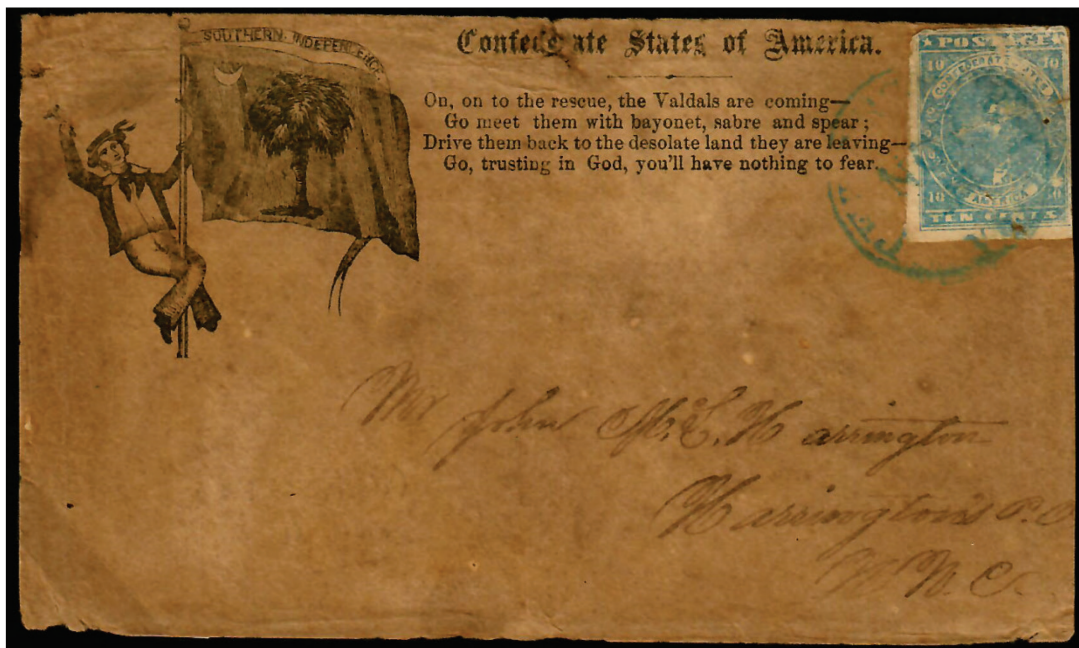 SOUTHERN INDEPENDENCE.
Confederate States of America.
On, on to the rescue, the Valdals are coming—
Go meet them with bayonet, sabre and spear;
Drive them back to the desolate land they are leaving—
Go, trusting in God, you'll have nothing to fear.
POSTAGE
10 10
CONFEDERATE STATES
OF AMERICA
10 10
TEN CENTS
Mr John McC. Harrington
Harrington's P.O
N.C.